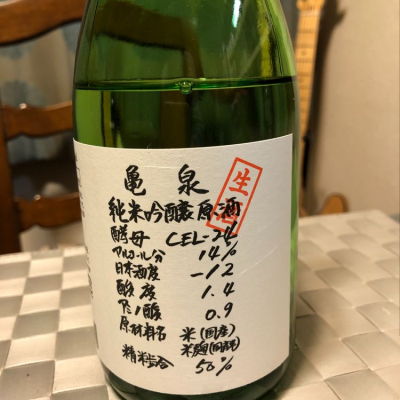 亀泉
生酒
純米吟醸原酒
酵母 CEL-24
アルコール分 14%
日本酒度 -12
酸度 1.4
アミノ酸 0.9
原材料名 米(国産)
米麹(国産米)
精米歩合 50%